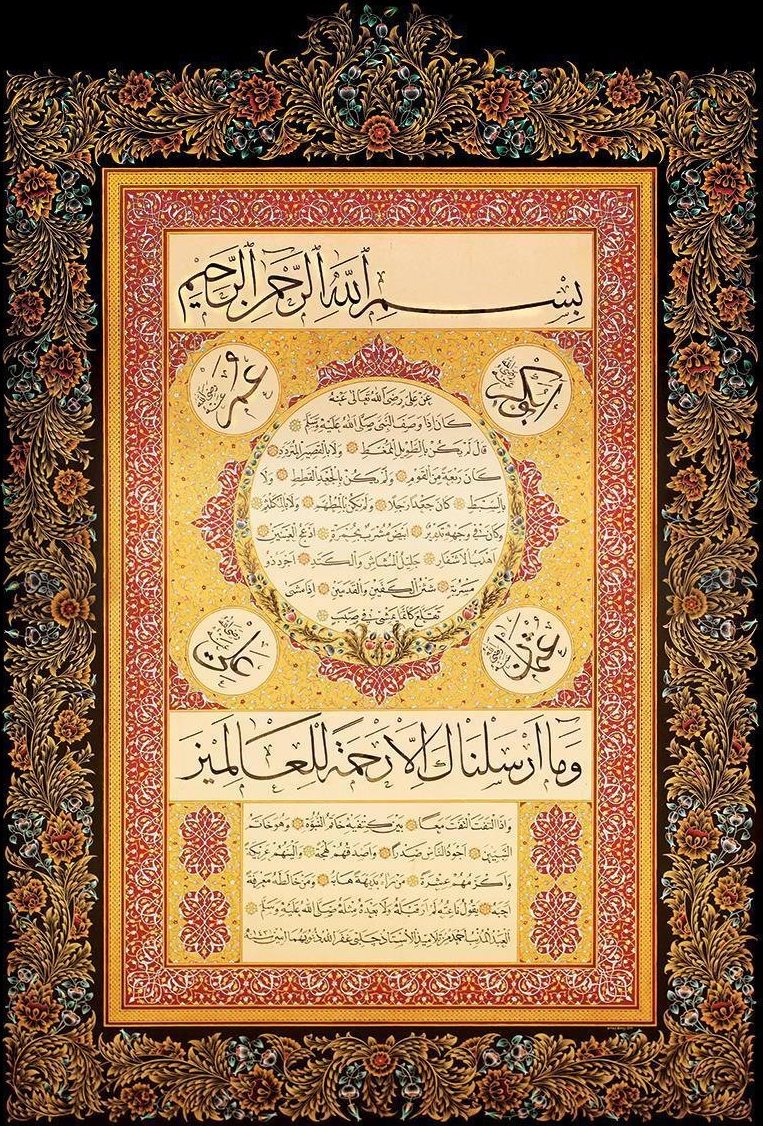 بسم الله الرحمن الرحيم
أبو بكر رضي الله عنه
عمر رضي الله عنه
عن علي رضي الله تعالى عنه
كان إذا وصف النبي صلى الله عليه وسلم
قال لم يكن بالطويل الممغط ولا بالقصير المتردد
كان ربعة من القوم ولم يكن بالجعد القطط ولا
بالسبط كان جعدا رجلا ولم يكن بالمطهم ولا بالمكلثم
وكان في وجهه تدوير أبيض مشرب بحمرة أدعج العينين
أهدب الأشفار جليل المشاش والكتد أجرد ذو
مسربة شثن الكفين والقدمين إذا مشى
تقلع كأنما يمشي في صبب
عثمان رضي الله عنه
علي رضي الله عنه
وما أرسلناك إلا رحمة للعالمين
وإذا التفت التفت معا بين كتفيه خاتم النبوة وهو خاتم
النبيين أجود الناس صدرا وأصدقهم لهجة وألينهم عريكة
وأكرمهم عشرة من رآه بديهة هابه ومن خالطه معرفة
أحبه يقول ناعته لم أر قبله ولا بعده مثله صلى الله عليه وسلم
العبد المذنب من تلاميذ الأستاذ چلبي غفر الله ذنوبهما آمين